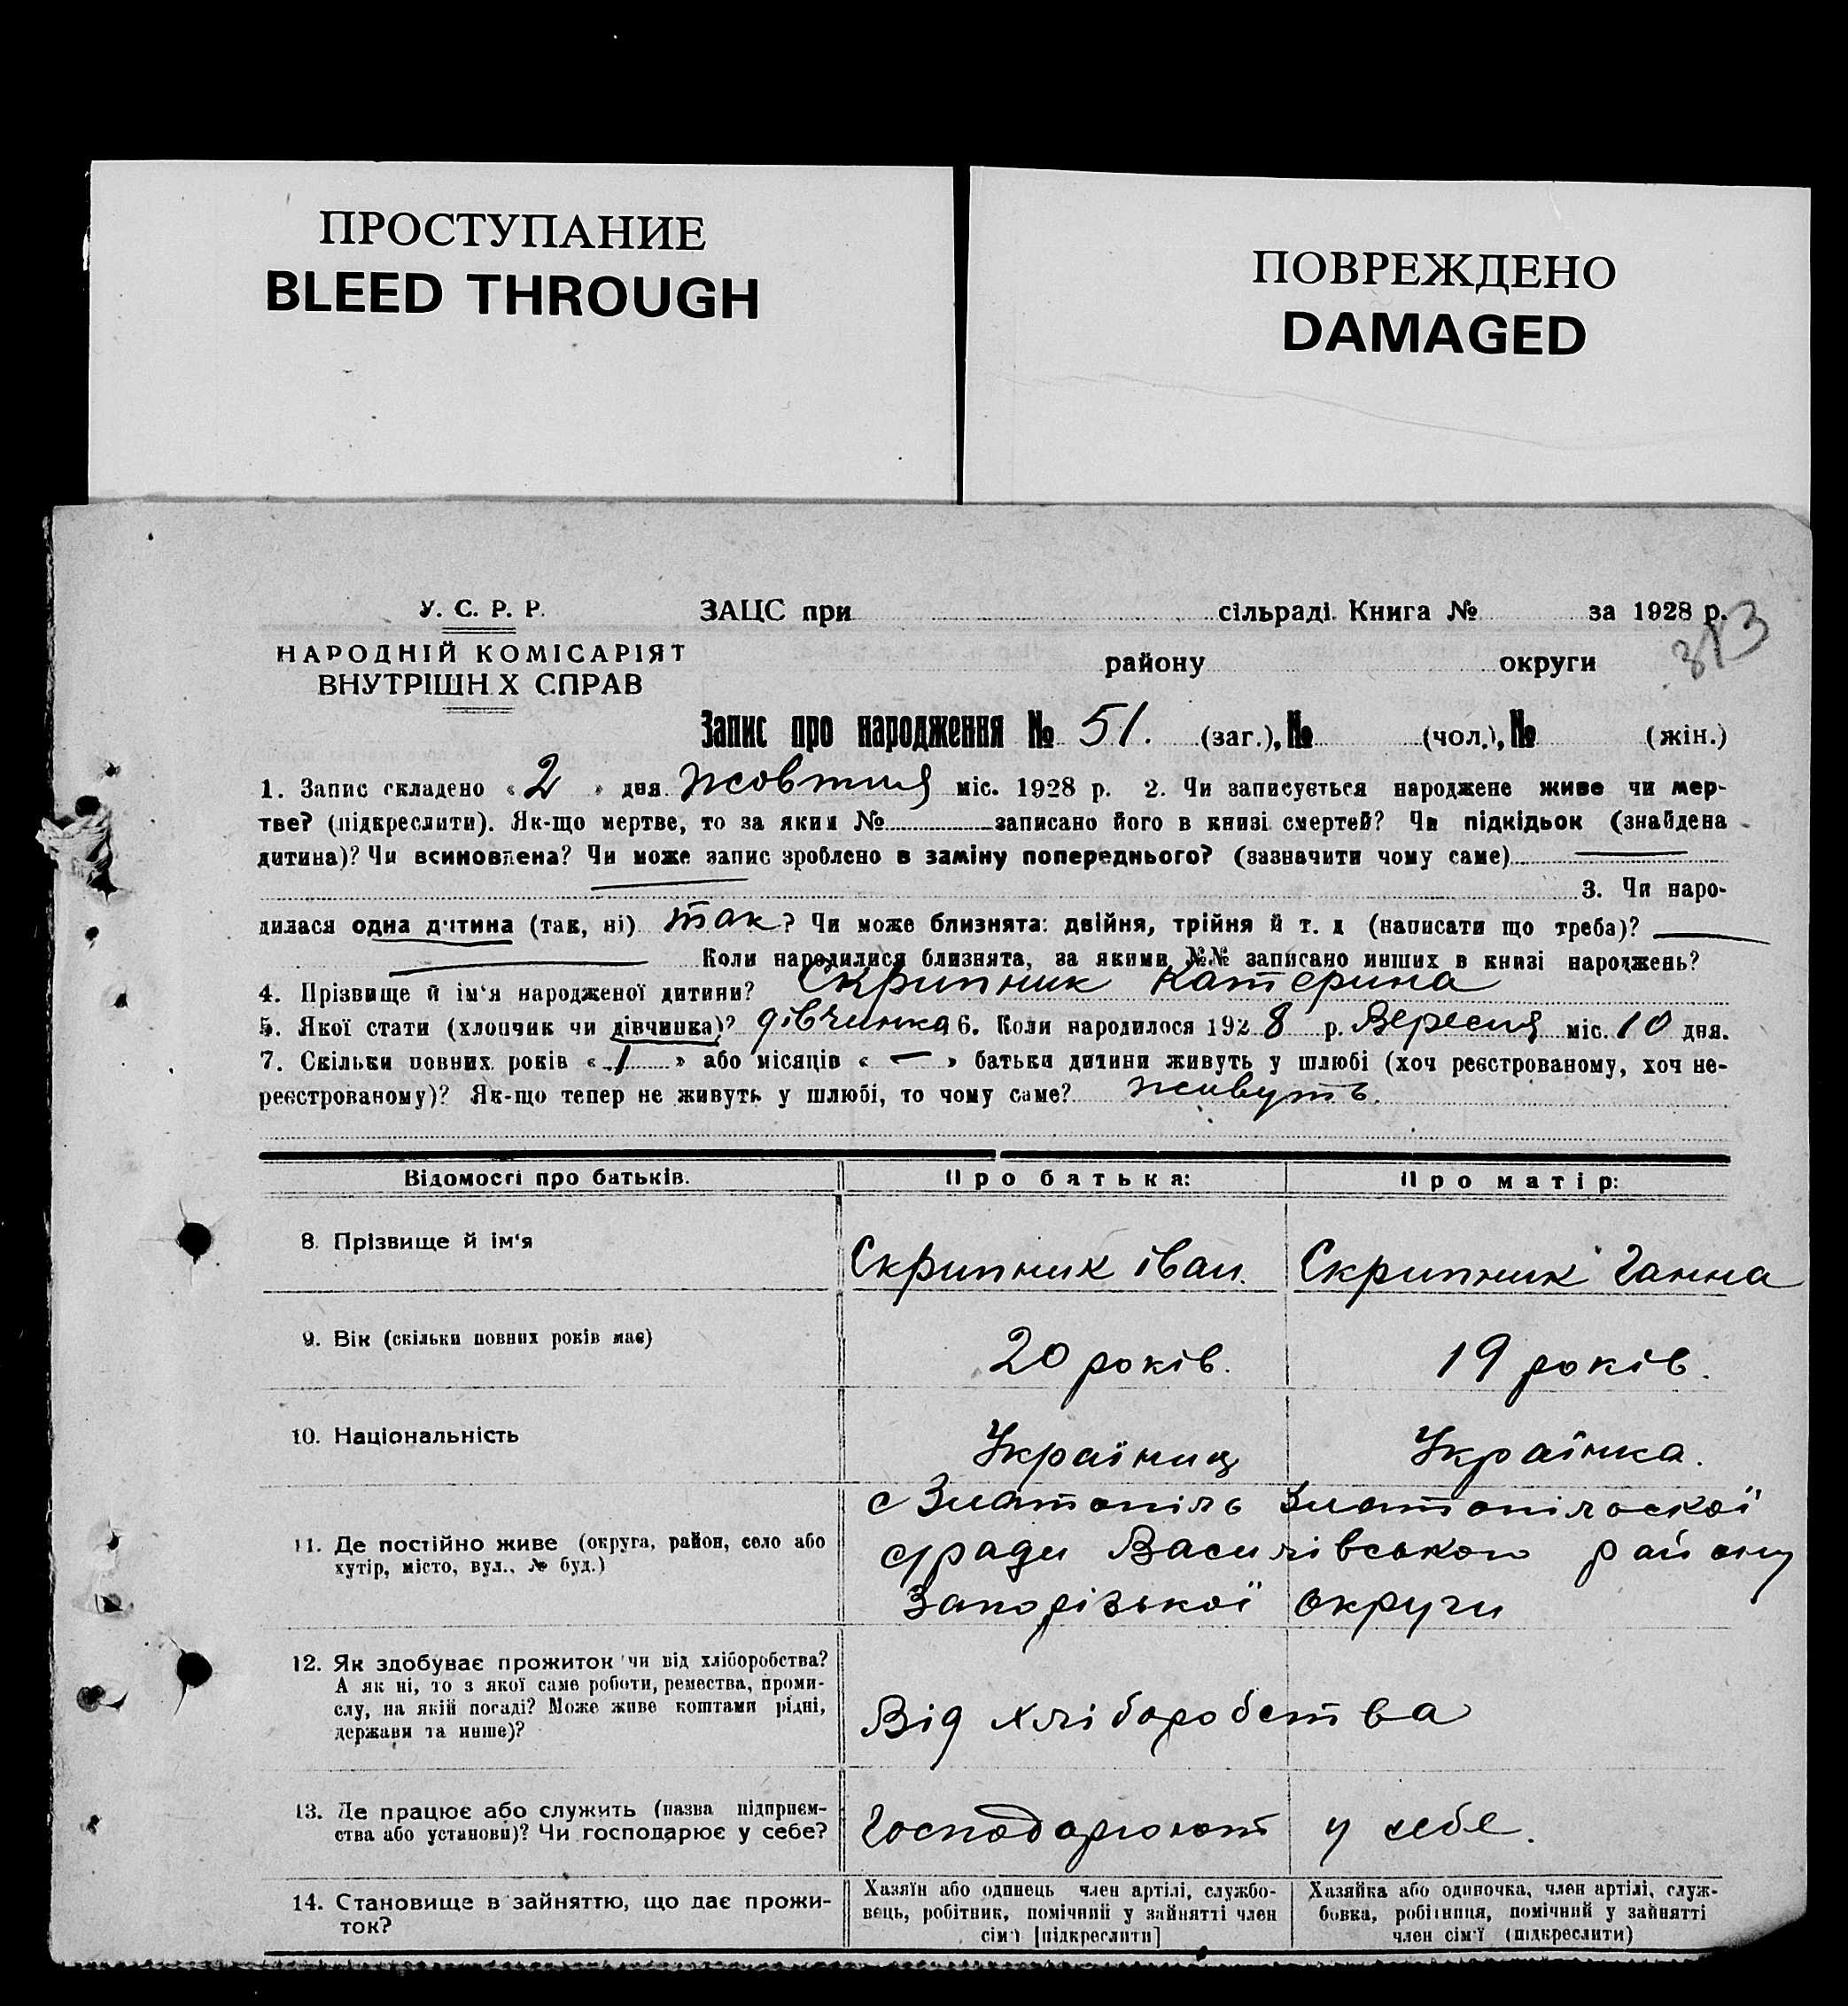 ПРОСТУПАНИЕ
BLEED THROUGH
ПОВРЕЖДЕНО
DAMAGED
У. С. Р. Р.
НАРОДНІЙ КОМІСАРІЯТ
ВНУТРІШН Х СПРАВ
ЗАЦС при сільраді. Книга № за 1928 р.
313
району округи
Запис про народження № 51. (заг.), № (чол.), № (жін.)
1. Запис складено «2» дня Жовтня міс. 1928 р. 2. Чи записується народжене живе чи мер-
тве? (підкреслити). Як-що мертве, то за яким № записано його в книзі смертей? Чи підкідьок (знайдена
дитина)? Чи всиновлена? Чи може запис зроблено в заміну попереднього? (зазначити чому саме) —
— 3. Чи наро-
дилася одна дитина (так, ні) так? Чи може близнята: двійня, трійня й т. д (написати що треба)? —
— Коли народилися близнята, за якими №№ записано инших в книзі народжень?
4. Прізвище й ім'я народженої дитини? Скрипник Катерина
5. Якої стати (хлопчик чи дівчинка)? дівчинка 6. Коли народилося 1928 р. Вересня міс. 10 дня.
7. Скільки повних років «1» або місяців «—» батьки дитини живуть у шлюбі (хоч реєстрованому, хоч не-
реєстрованому)? Як-що тепер не живуть у шлюбі, то чому саме? живуть.
Відомості про батьків. Про батька: Про матір:
8. Прізвище й ім'я Скрипник Іван. Скрипник Ганна
9. Вік (скільки повних років має) 20 років. 19 років.
10. Національність Україниц Українка.
11. Де постійно живе (округа, район, село або
хутір, місто, вул., № буд.)
с Златопіль Златопільскої
с/ради Василівського району
Запорізької округи
12. Як здобуває прожиток чи від хліборобства?
А як ні, то з якої саме роботи, ремества, проми-
слу, на якій посаді? Може живе коштами рідні,
держави та инше)?
Від хліборобства
13. Де працює або служить (назва підприєм-
ства або установи)? Чи господарює у себе?
Господарюют у себе.
14. Становище в зайняттю, що дає прожи-
ток?
Хазяїн або одинець член артілі, службо-
вець, робітник, помічний у зайнятті член
сім'ї [підкреслити]
Хазяйка або одиночка, член артілі, служ-
бовка, робітниця, помічний у зайнятті
член сім'ї (підкреслити)